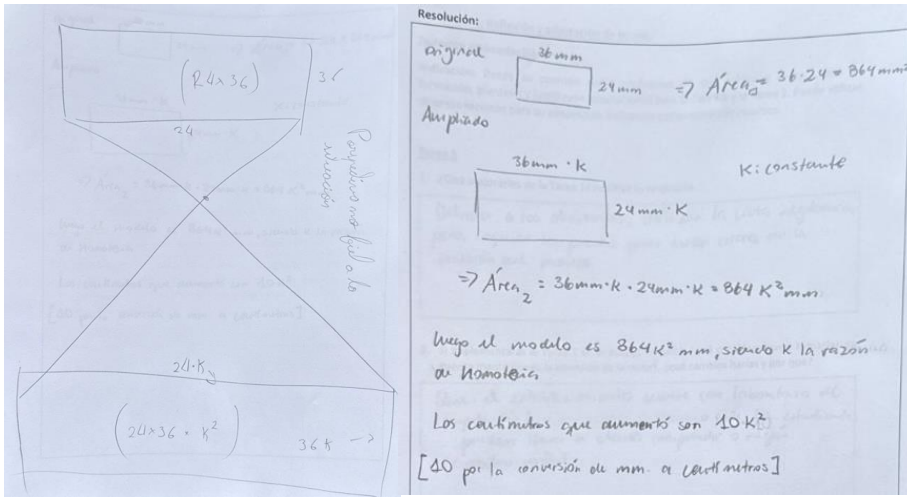 (24×36)
36
24
24·K
(24×36 · K²)
36K →
Resolución:
original
36 mm
24 mm
=> Área₀ = 36·24 = 864 mm²
Ampliado
36mm · K
24mm · K
K: constante
=> Área₂ = 36mm·K · 24mm·K = 864 K² mm
luego el modelo es 864K² mm, siendo K la razón
de homotecia
Los centímetros que aumentó son 10K²
[10 por la conversión de mm. a centímetros]